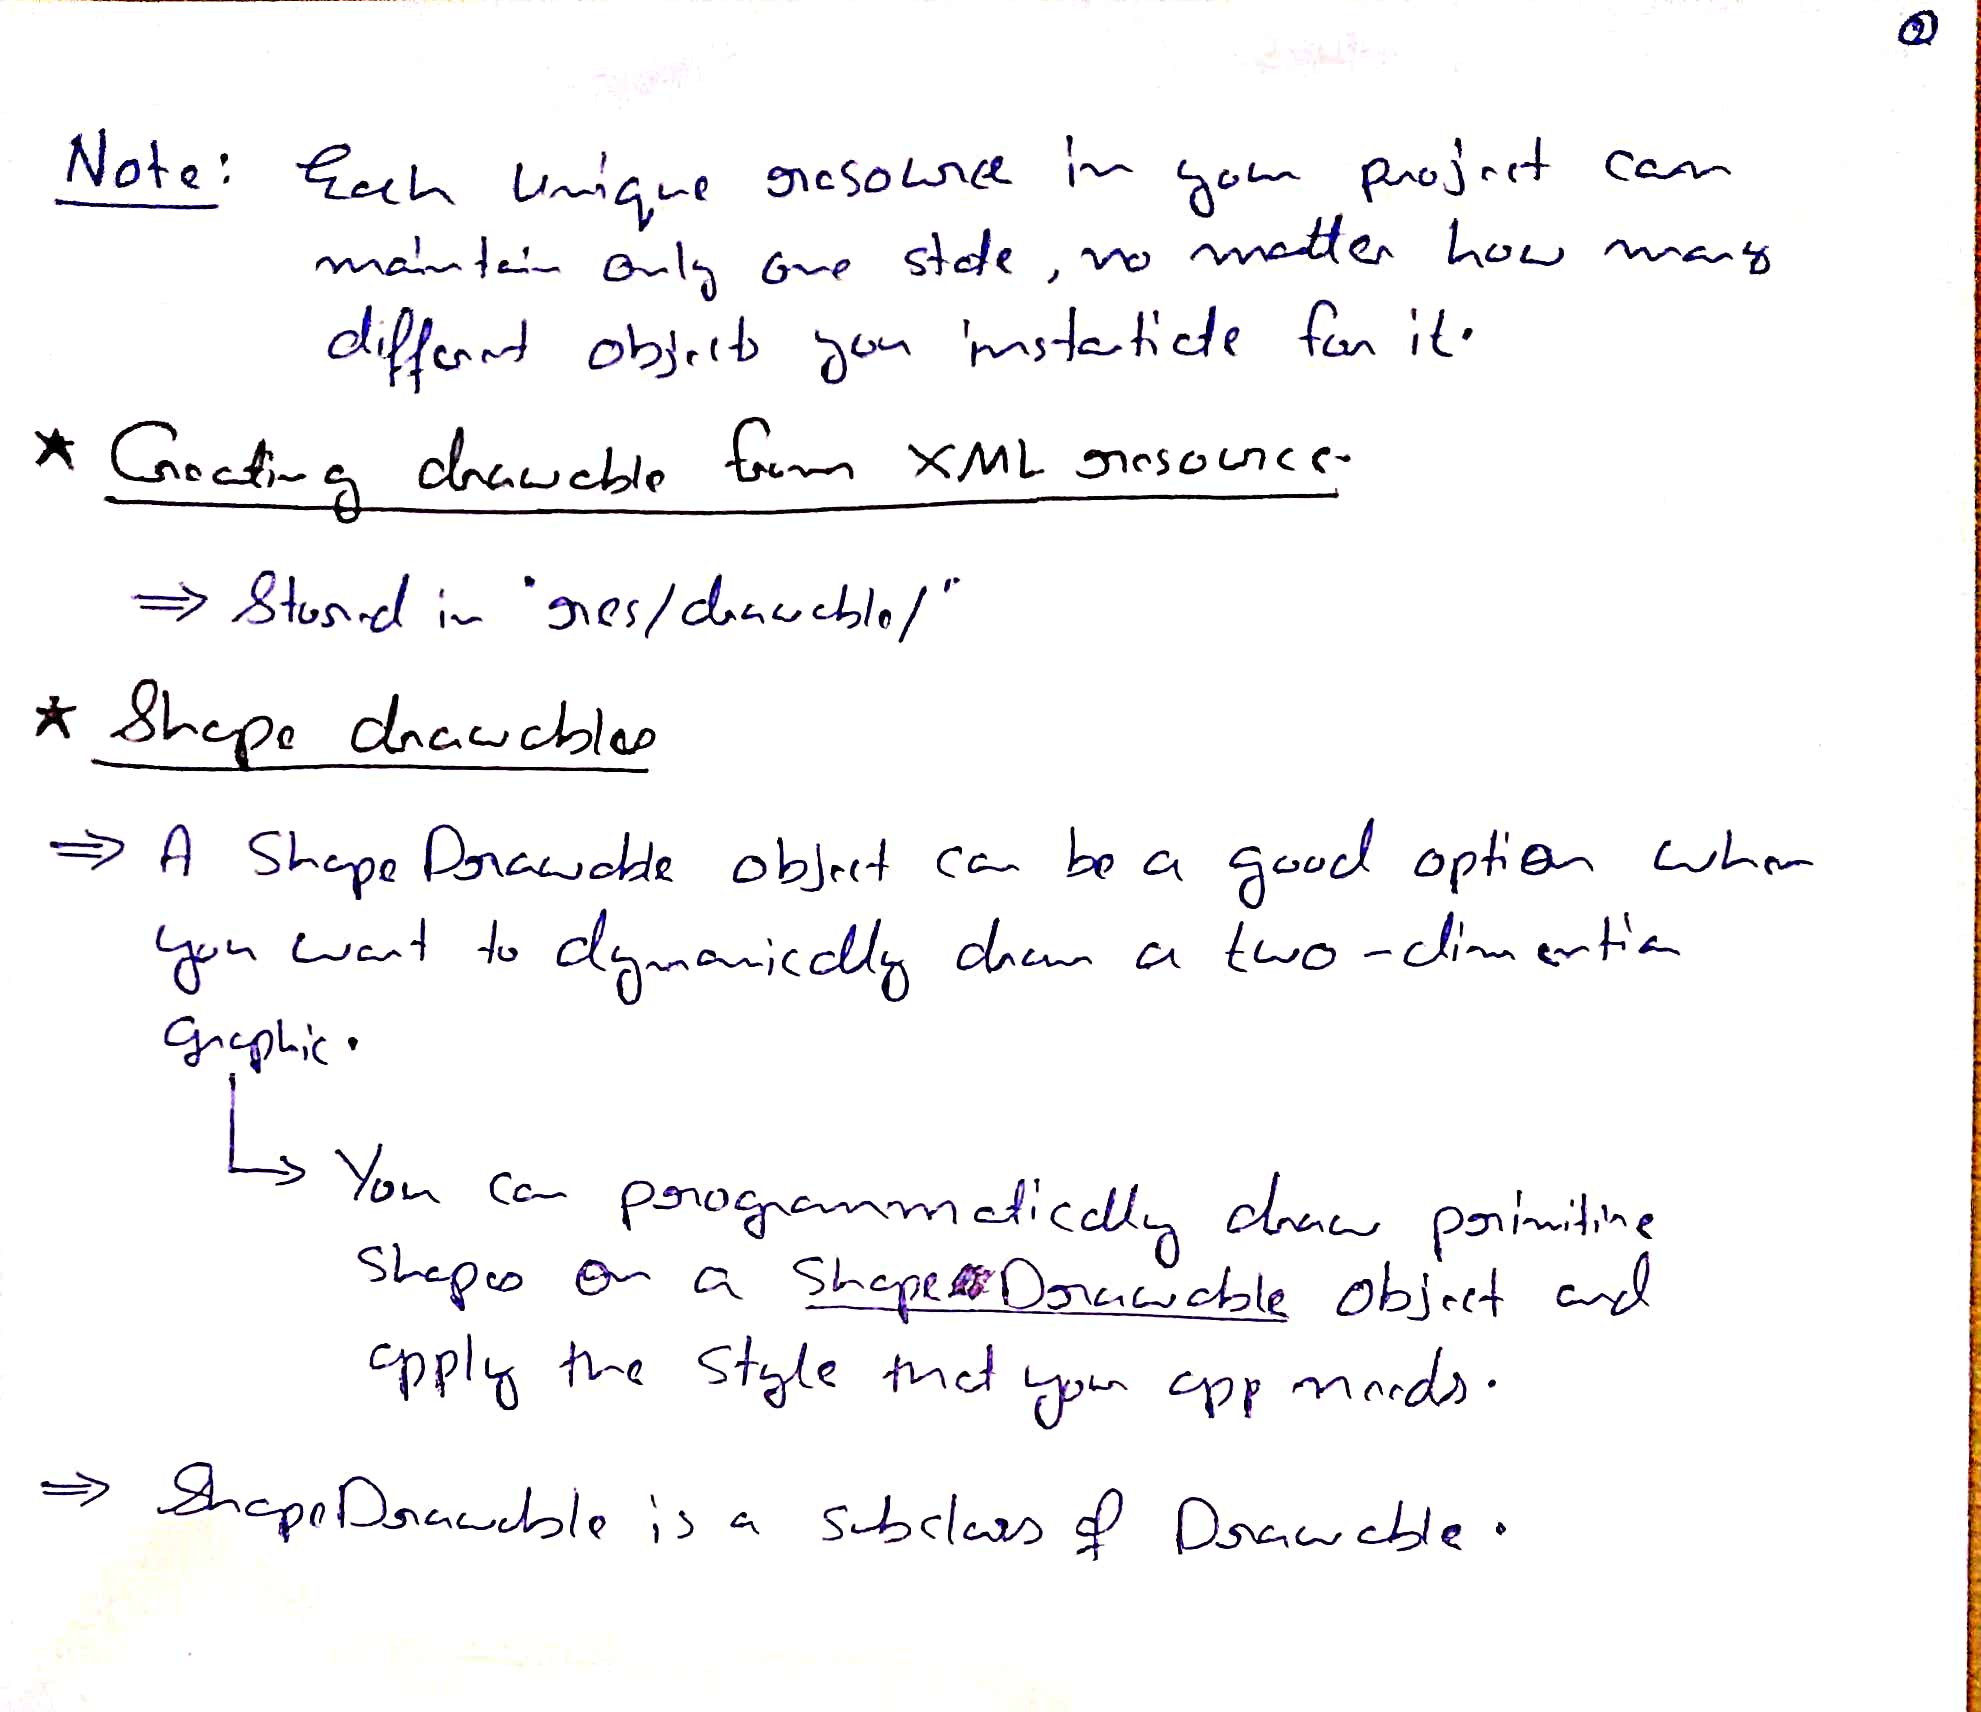 ②
Note: Each Unique resource in your project can
maintain only one state, no matter how many
different objects you instatiate for it.
* Creating drawable from XML resource.
⇒ Stored in "res/drawable/"
* Shape drawables
⇒ A Shape Drawable object can be a good option when
you want to dynamically draw a two-dimention
graphic.
↳ You can programmatically draw primitive
shapes on a Shape Drawable object and
apply the style that your app needs.
⇒ ShapeDrawable is a subclass of Drawable.